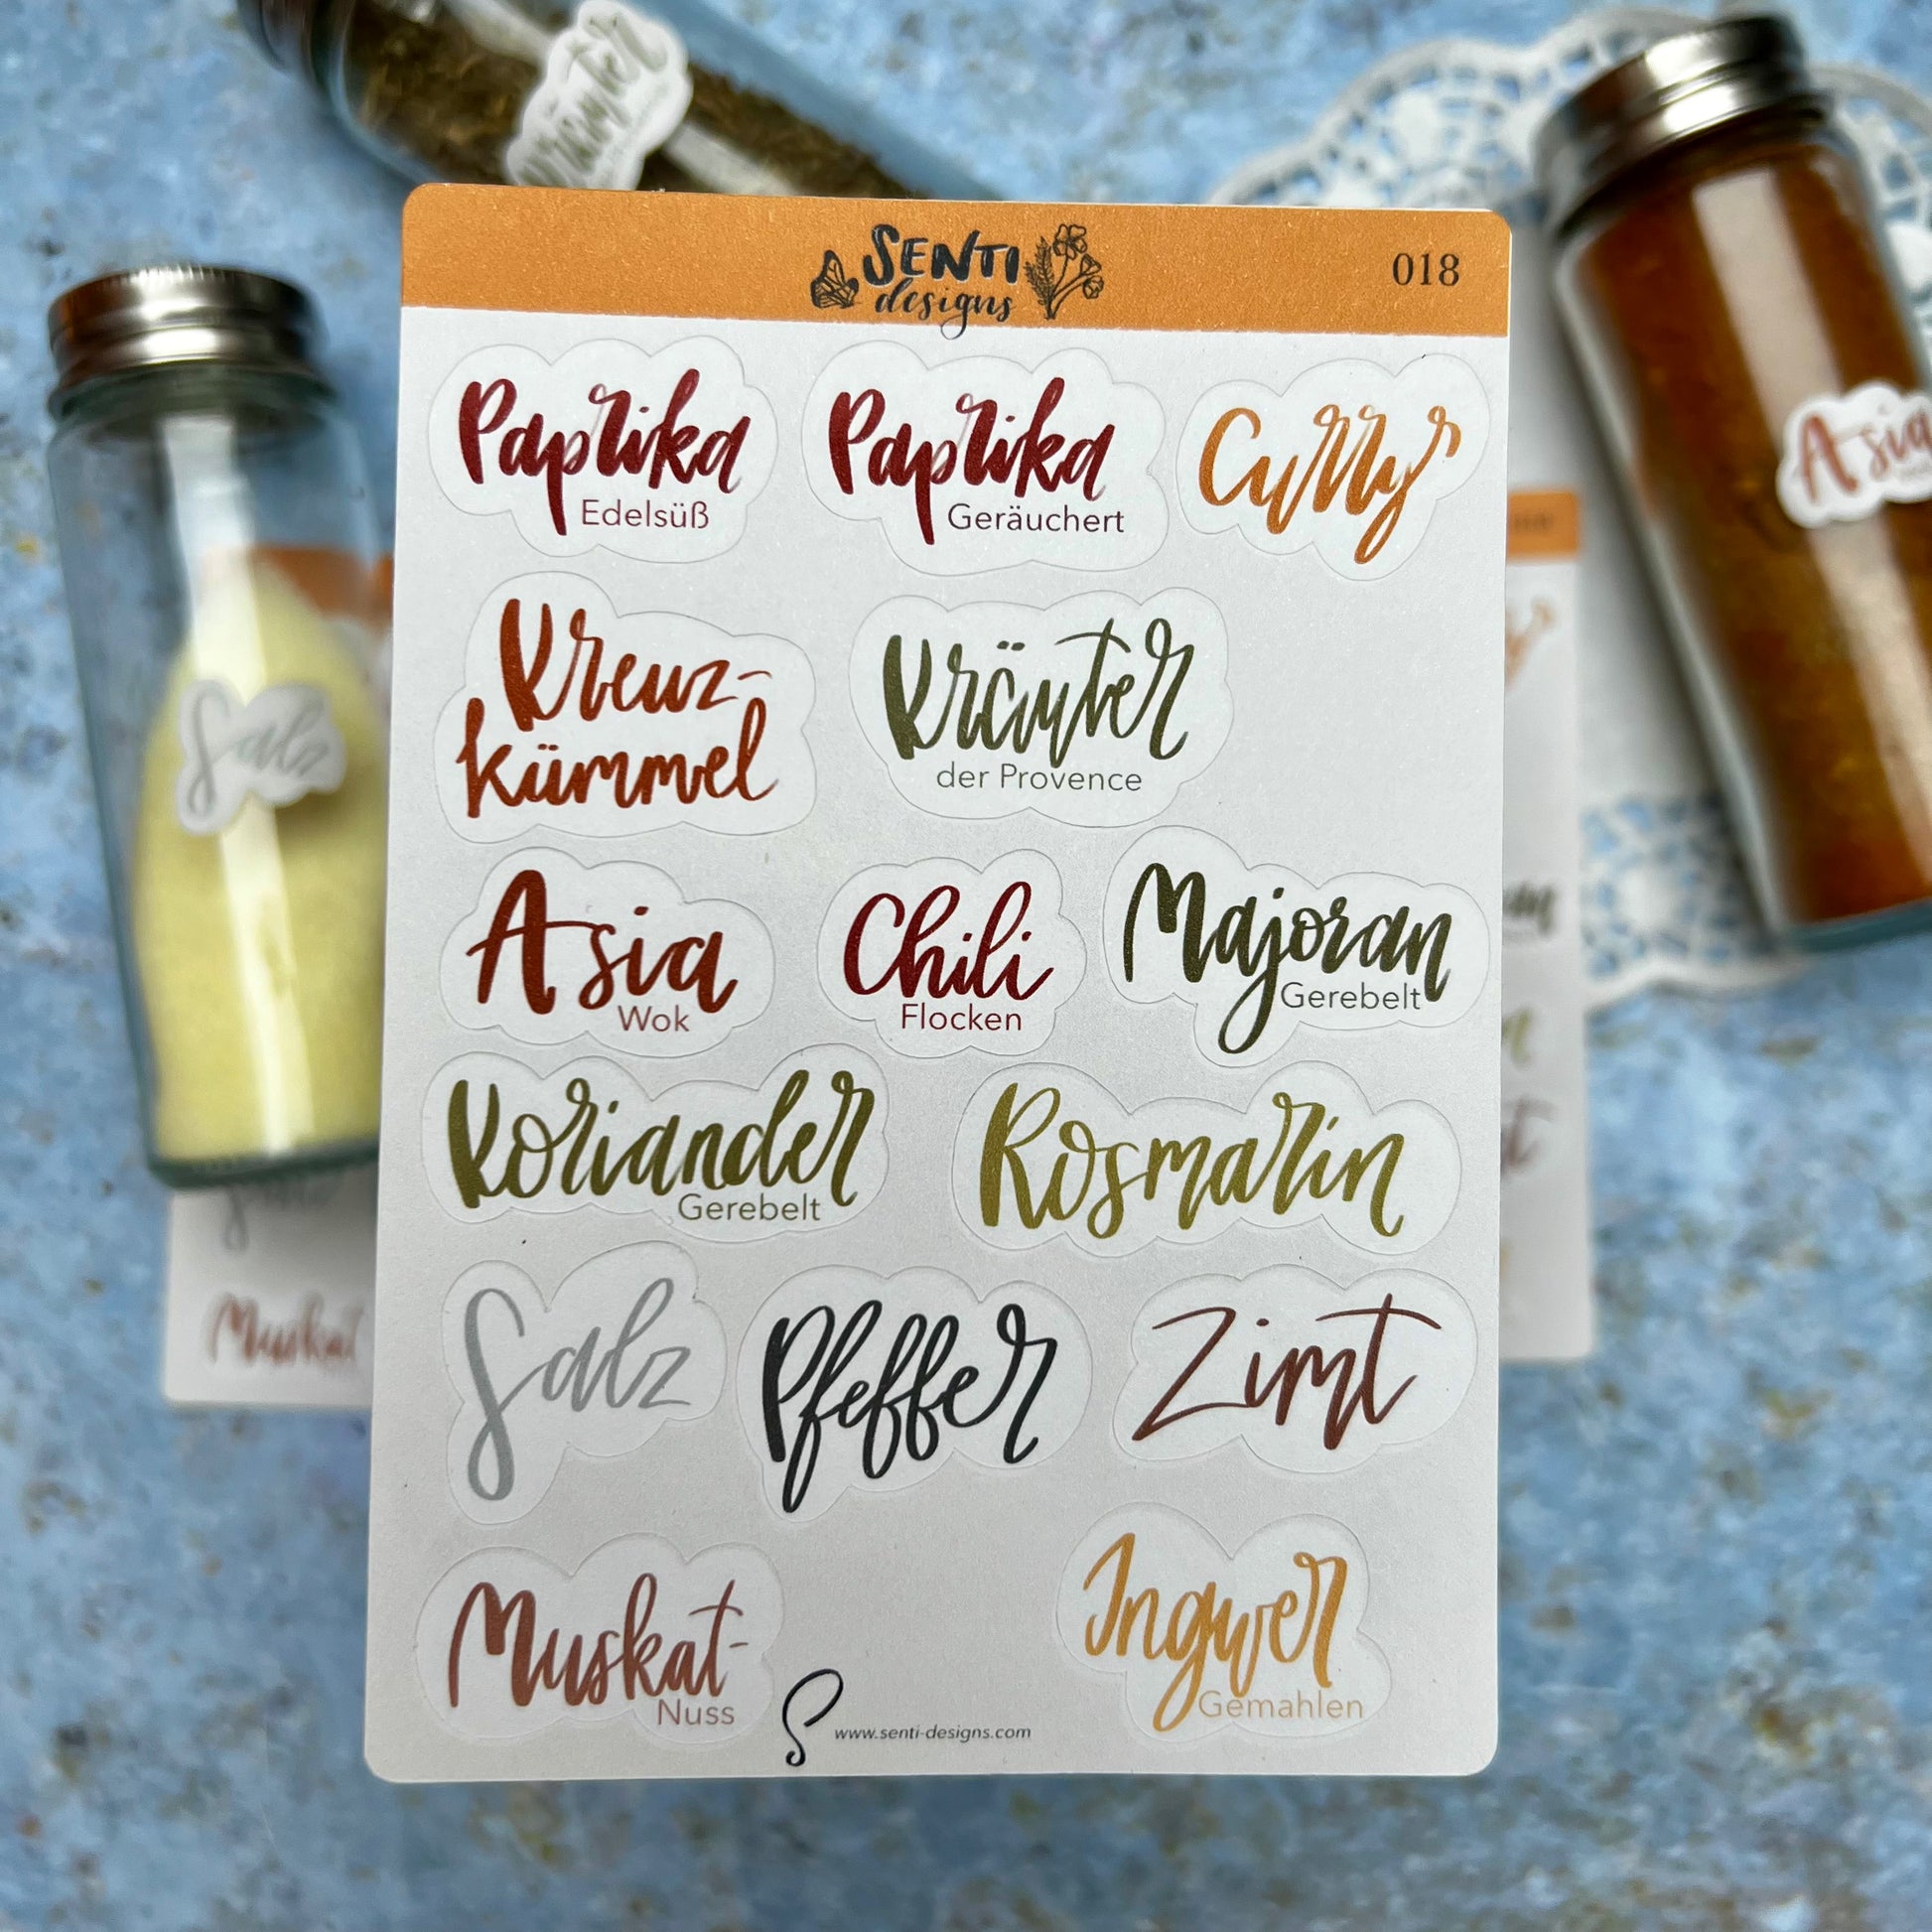 Kräuter
SENTI
designs
018
Paprika
Edelsüß
Paprika
Geräuchert
Curry
Kreuz-
kümmel
Kräuter
der Provence
Asia
Wok
Chili
Flocken
Majoran
Gerebelt
Koriander
Gerebelt
Rosmarin
Salz
Pfeffer
Zimt
Muskat-
Nuss
Ingwer
Gemahlen
S
www.senti-designs.com
Salz
Asia
Muskat